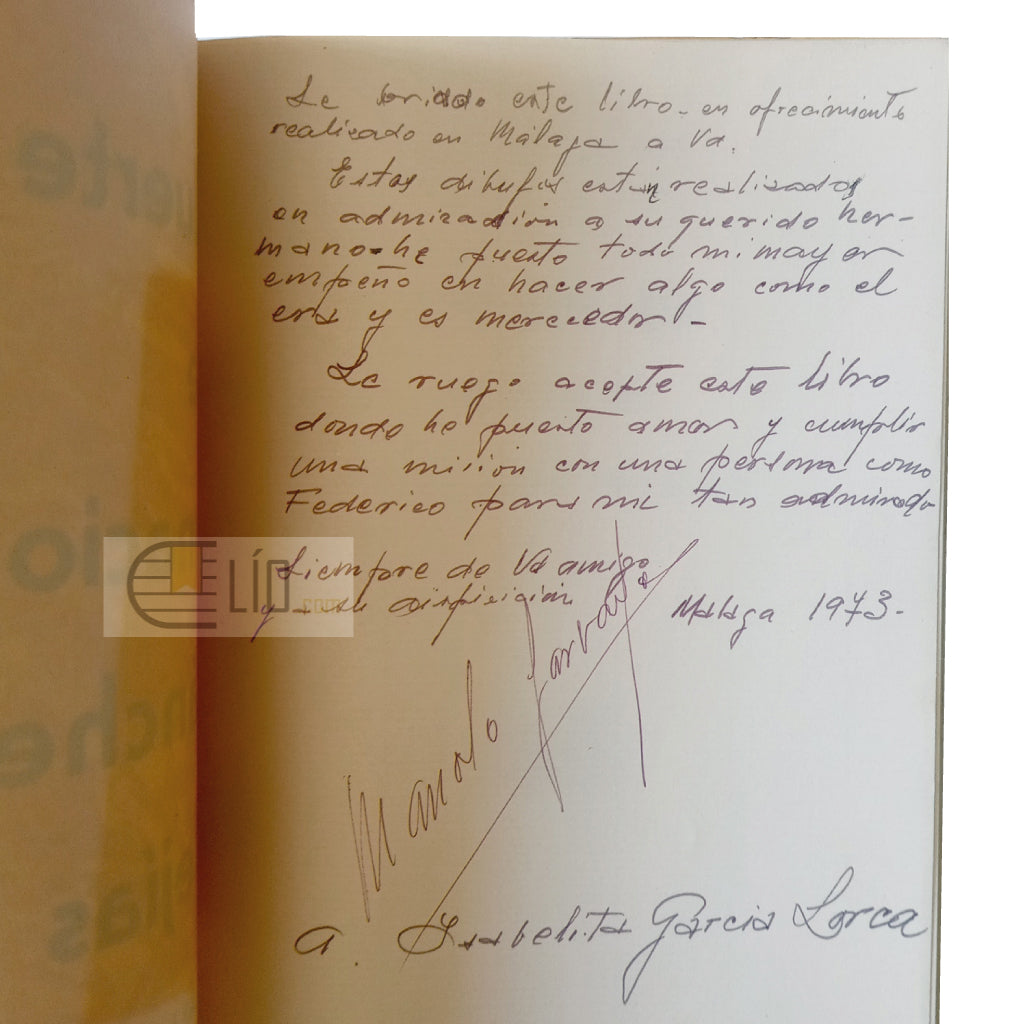 Le brindo este libro - en ofrecimiento
realizado en Málaga a Vd.
Estos dibujos están realizados
en admiración a su querido her-
mano - he puesto todo mi mayor
empeño en hacer algo como el
era y es merecedor -
Le ruego acepte este libro
donde he puesto amor y cumplir
una misión con una persona como
Federico para mi tan admirado
Siempre de Vd amigo
y a su disposición
Málaga 1973 -
Manolo
A. Isabelita García Lorca
ELÍP
uerte
nche
ejias